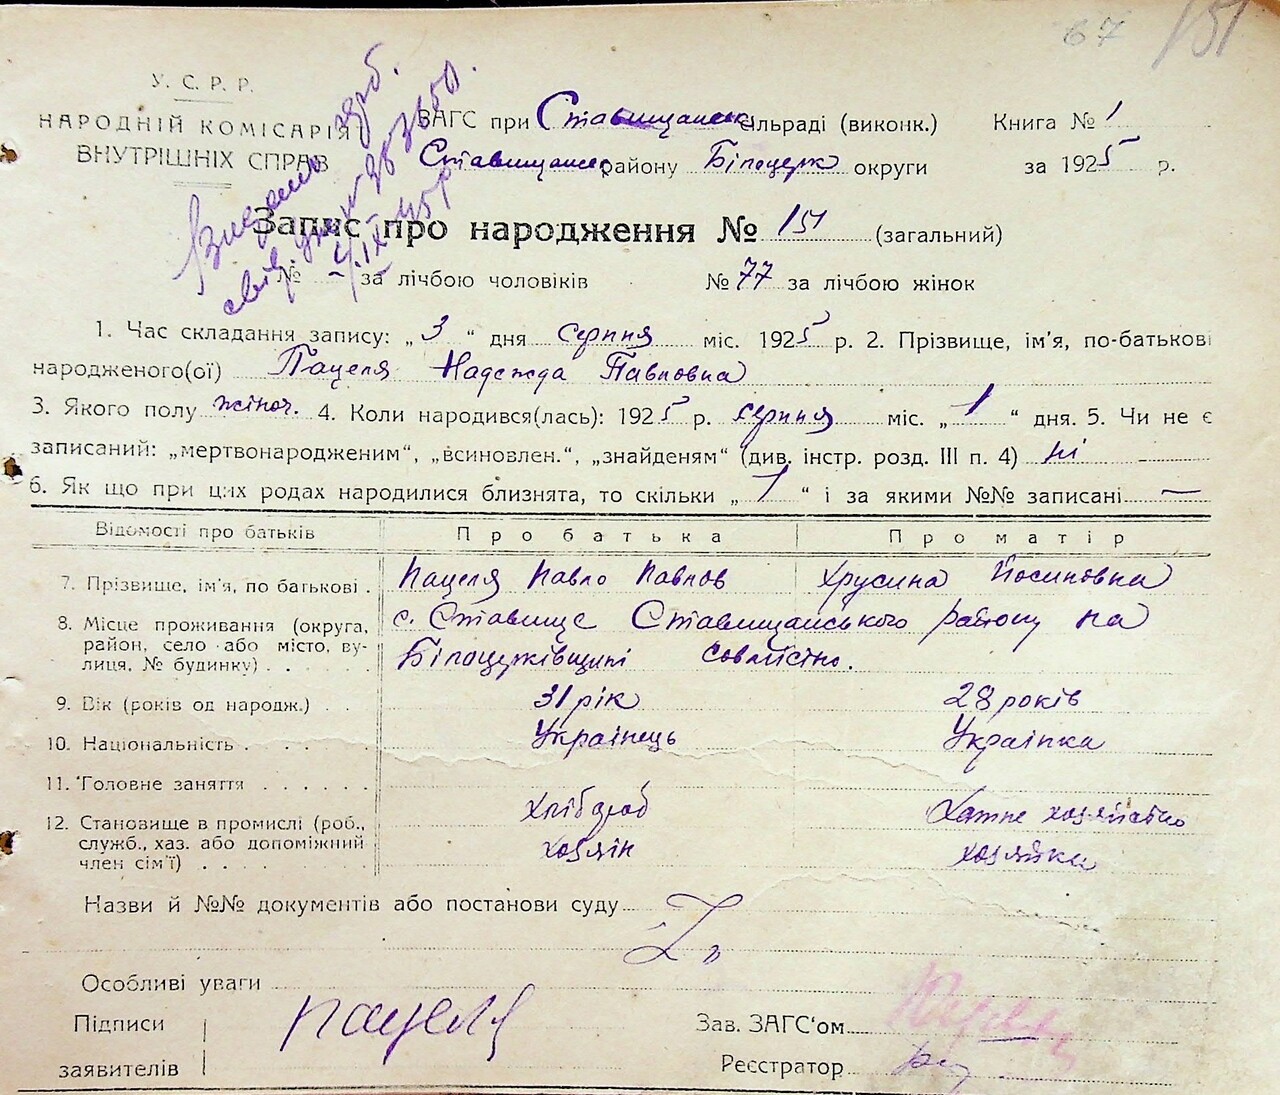 67 151
У. С. Р. Р.
НАРОДНІЙ КОМІСАРІЯТ
ВНУТРІШНІХ СПРАВ
ЗАГС при Ставищанськ сільраді (виконк.) Книга № 1
Ставищанс району Білоцерк округи за 1925 р.
Запис про народження № 151 (загальний)
№ – за лічбою чоловіків № 77 за лічбою жінок
1. Час складання запису: „ 3 “ дня серпня міс. 1925 р. 2. Прізвище, ім'я, по-батькові
народженого(ої) Пацеля Надежда Павловна
3. Якого полу жіноч. 4. Коли народився(лась): 1925 р. серпня міс. „ 1 “ дня. 5. Чи не є
записаний: „мертвонародженим“, „всиновлен.“, „знайденям“ (див. інстр. розд. III п. 4) ні
6. Як що при цих родах народилися близнята, то скільки „ 1 “ і за якими №№ записані —
Відомості про батьків Про батька Про матір
7. Прізвище, ім'я, по батькові . Пацеля Павло Павлов Хрусина Йосиповна
8. Місце проживання (округа, район, село або місто, вулиця, № будинку) . . с. Ставище Ставищанського району на
Білоцерківщині совмістно.
9. Вік (років од народж.) . . 31 рік 28 років
10. Національність . . . . . Українець Українка
11. Головне заняття . . . . . . Хлібороб Хатне хозяйство
12. Становище в промислі (роб., служб., хаз. або допоміжний член сім'ї) . . . . хозяін хозяйка
Назви й №№ документів або постанови суду
Особливі уваги
Підписи
заявителів
Пацеля
Зав. ЗАГС'ом
Реєстратор